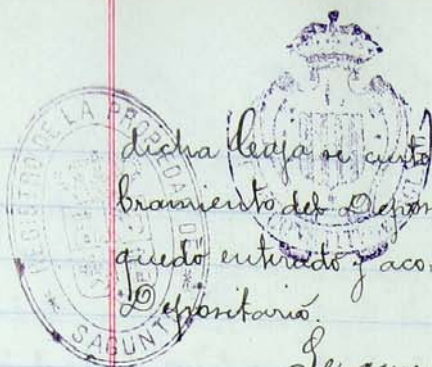 REGISTRO DE LA PROPIEDAD DE
SAGUNTO
dicha Caja se
bramiento del Depos
quedo enterado y aco
Depositario.
Se